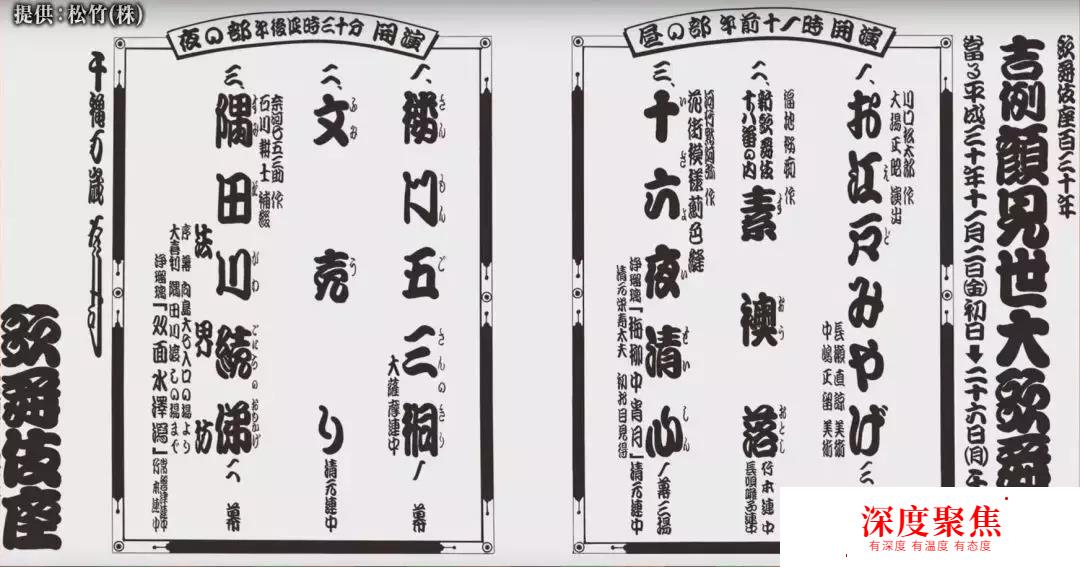 提供:松竹(株)
歌舞伎座百三十年
吉例顔見世大歌舞
當る平成三十年十一月二日(金)初日➡二十六日(月)千
昼の部 午前十一時開演
一、
川口松太郎 作
大場正昭 演出
お江戸みやげ
えど
長瀬直諒 美術
中嶋正留 美術
二、
福地桜痴 作
新歌舞伎
十八番の内
素襖落
す おう おとし
竹本連中
長唄囃子連中
三、
河竹黙阿弥 作
花街模様薊色縫
十六夜清心
いざよい せいしん
浄瑠璃「梅柳中宵月」清元連中
清元栄寿太夫 初お目見得
一幕三場
夜の部 午後四時三十分 開演
一、
楼門五三桐
さんもんごさんのきり
大薩摩連中
一幕
二、
文売り
ふみ う
清元連中
三、
奈河七五三助 作
石川耕士 補綴
隅田川続俤
すみだがわ ごにちのおもかげ
法界坊
序幕 向島大七入口の場より
大喜利 隅田川渡しの場まで
浄瑠璃「双面水澤瀉」
常磐津連中
竹本連中
二幕
千穐万歳
歌舞伎座
深度聚焦
有深度 有温度 有态度